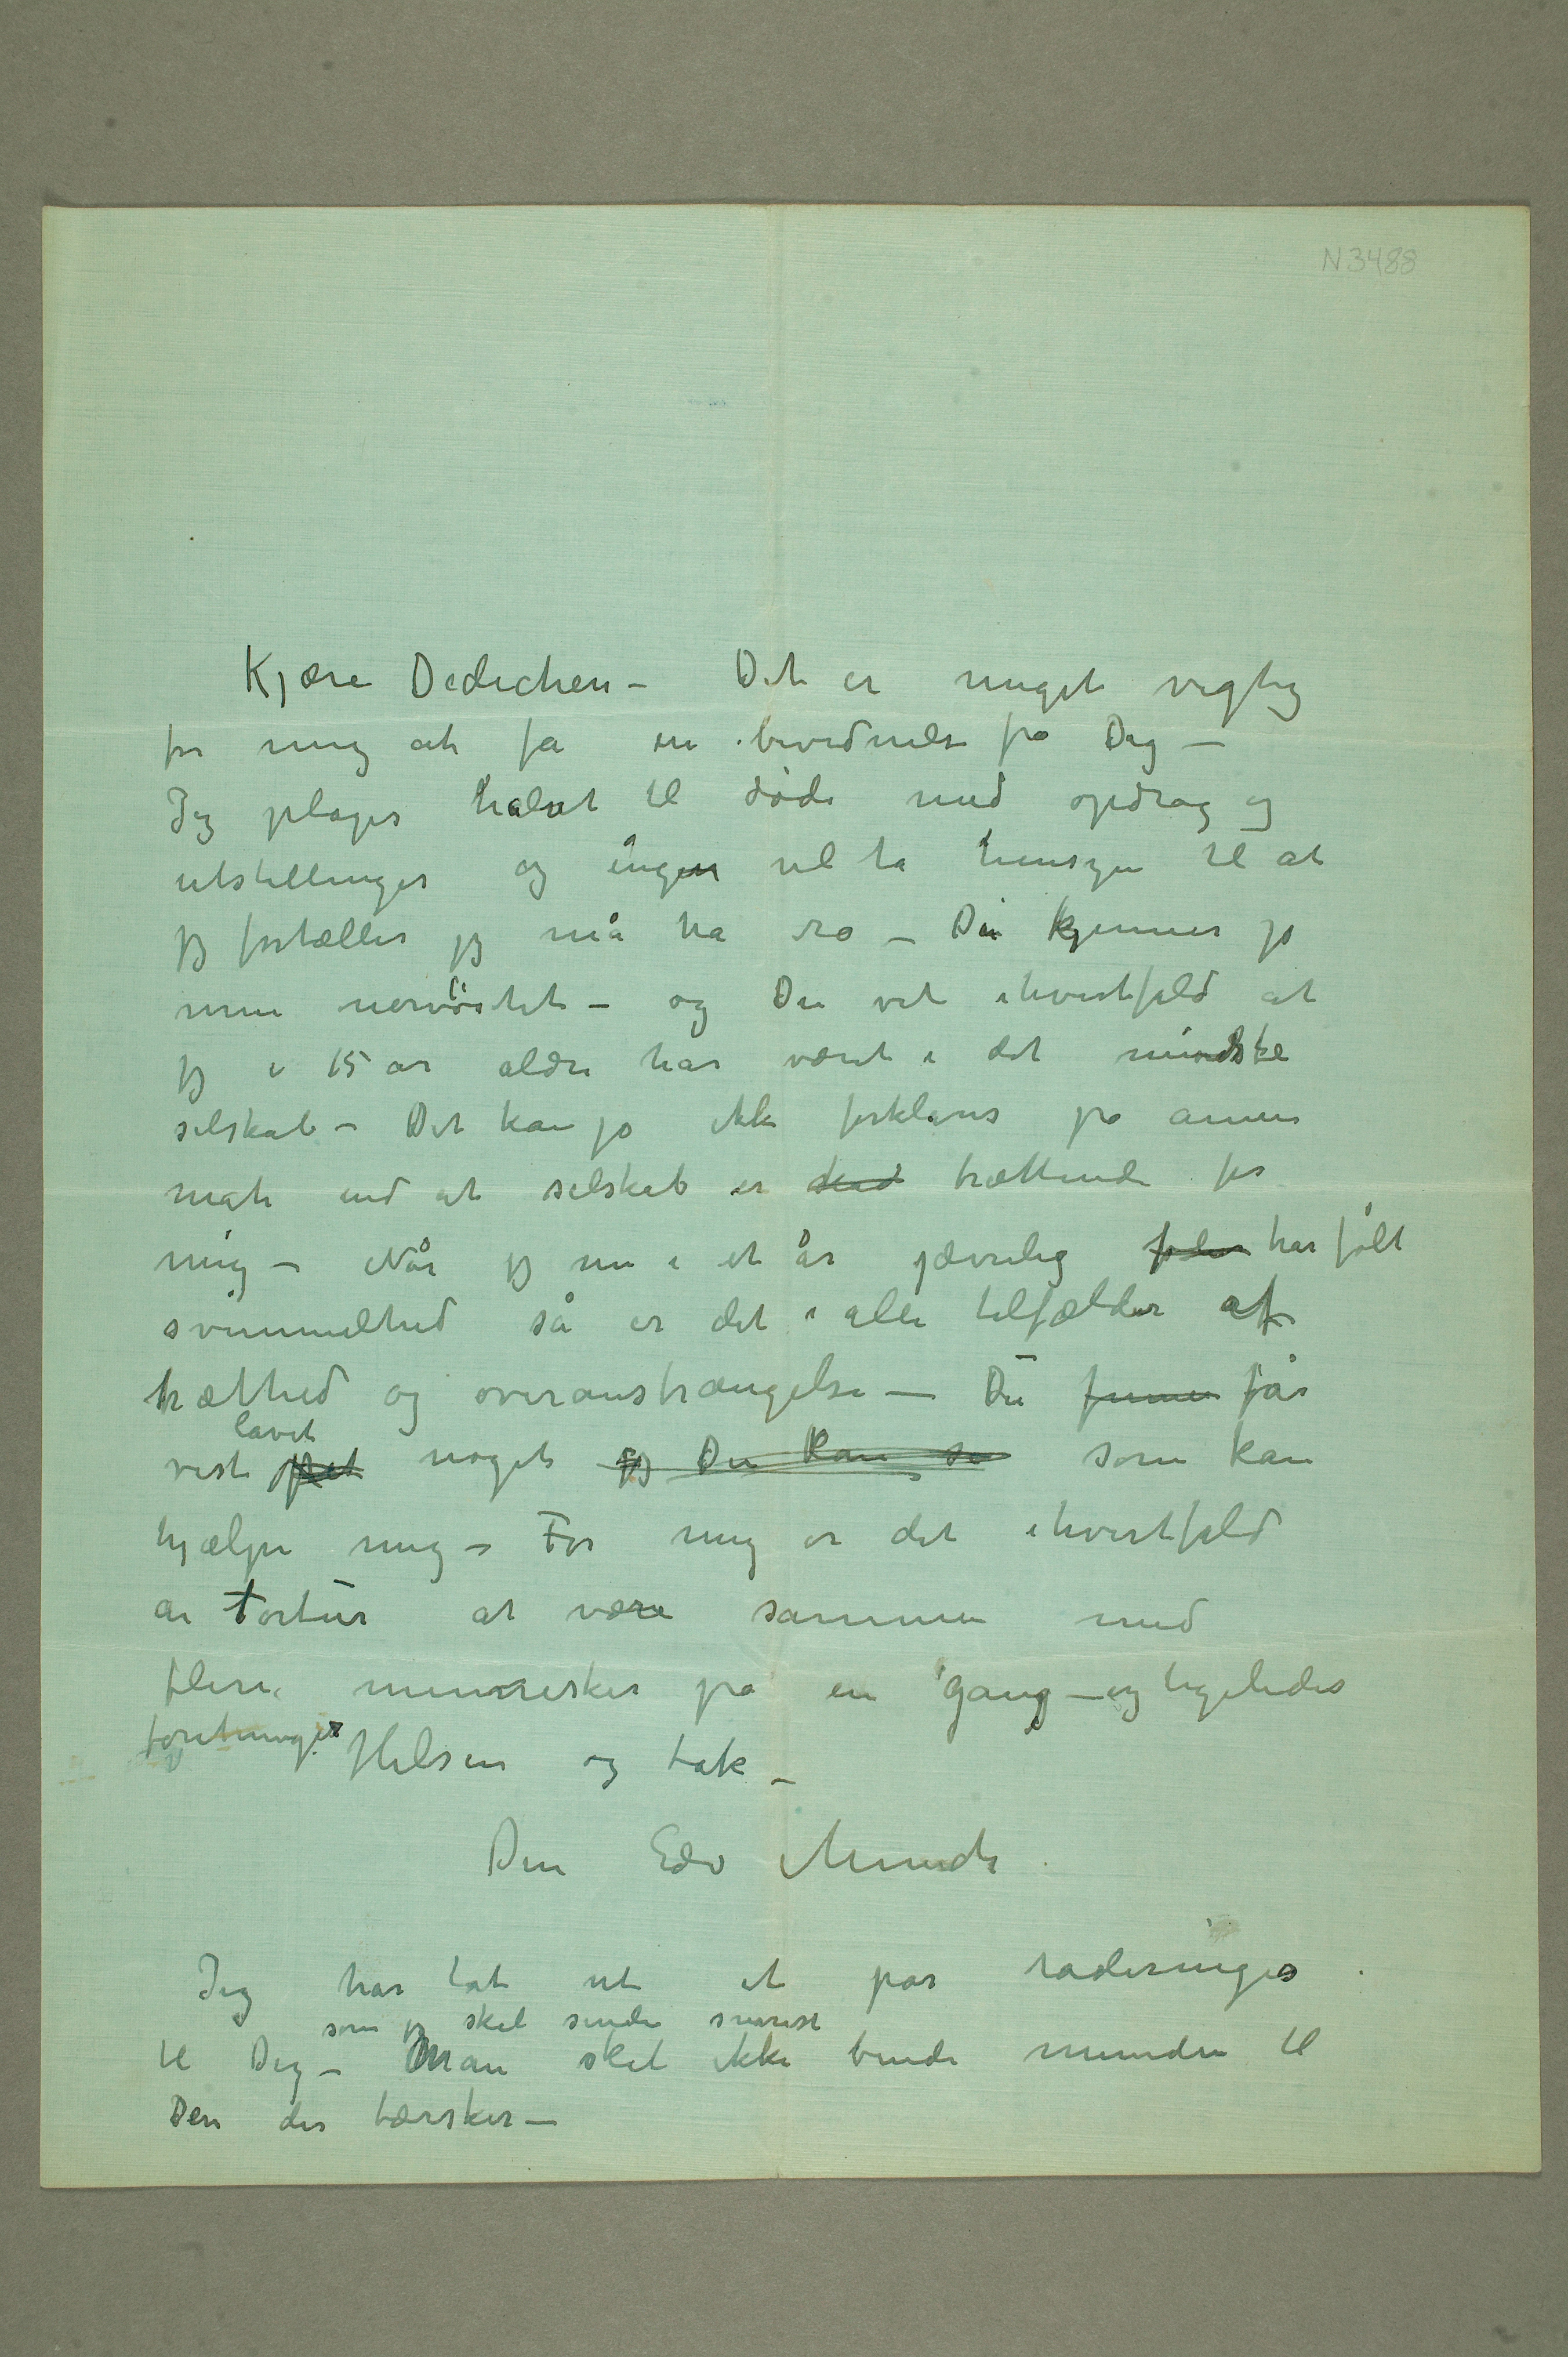 N3488
Kjære Dedichen – Det er meget vigtig
for mig at få en bevidnelse fra Dig –
Jeg plages halvt til døde med opdrag og
utstillinger og ingen vil ta hensyn til at
jeg fortæller jeg må ha ro – Du kjenner jo
min nervøsitet – og Du vet ihvertfald at
jeg i 15 år aldri har været i det mindste
selskab – Det kan jo ikke forklares på annen
måte end at selskab er trættende for
mig – Når jeg nu i et år jævnlig føler har følt
svimmelhed så er det i alle tilfælder af
træthed og overanstrængelse – Du finner får
lavet
vist noget jeg Du kan se som kan
hjælpe mig – For mig er det ihvertfald
en tortur at være sammen med
flere mennesker på en gang – og ligeledes
foretninger
Hilsen og tak –
Din Edv Munch
Jeg har tat ut et par raderinger
som jeg skal sende snarest
til Dig – Man skal ikke binde munden til
Den der tærsker –